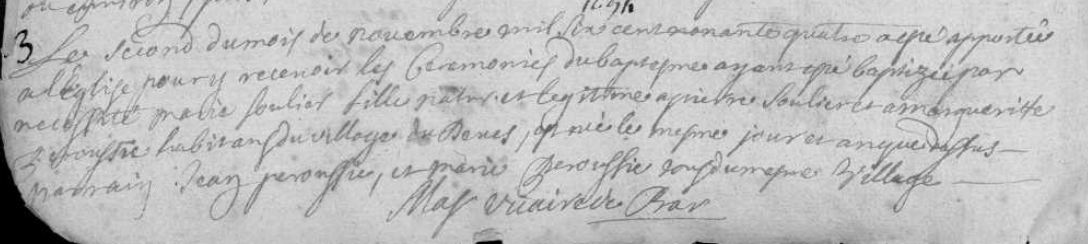 1694
3 Le second du mois de novembre mil six cent nonante quatre a esté apportée
a l'Eglise pour y recevoir les Ceremonies du baptesme ayant esté baptizée par
necessité marie soulier fille natur. et legitime a pierre Soulier et a margueritte
peroussie habitans du village de Benes, et née le mesme jour et an que dessus
parrain Jean peroussie, et marie peroussie tous du mesme village
Mas vicaire de Bar